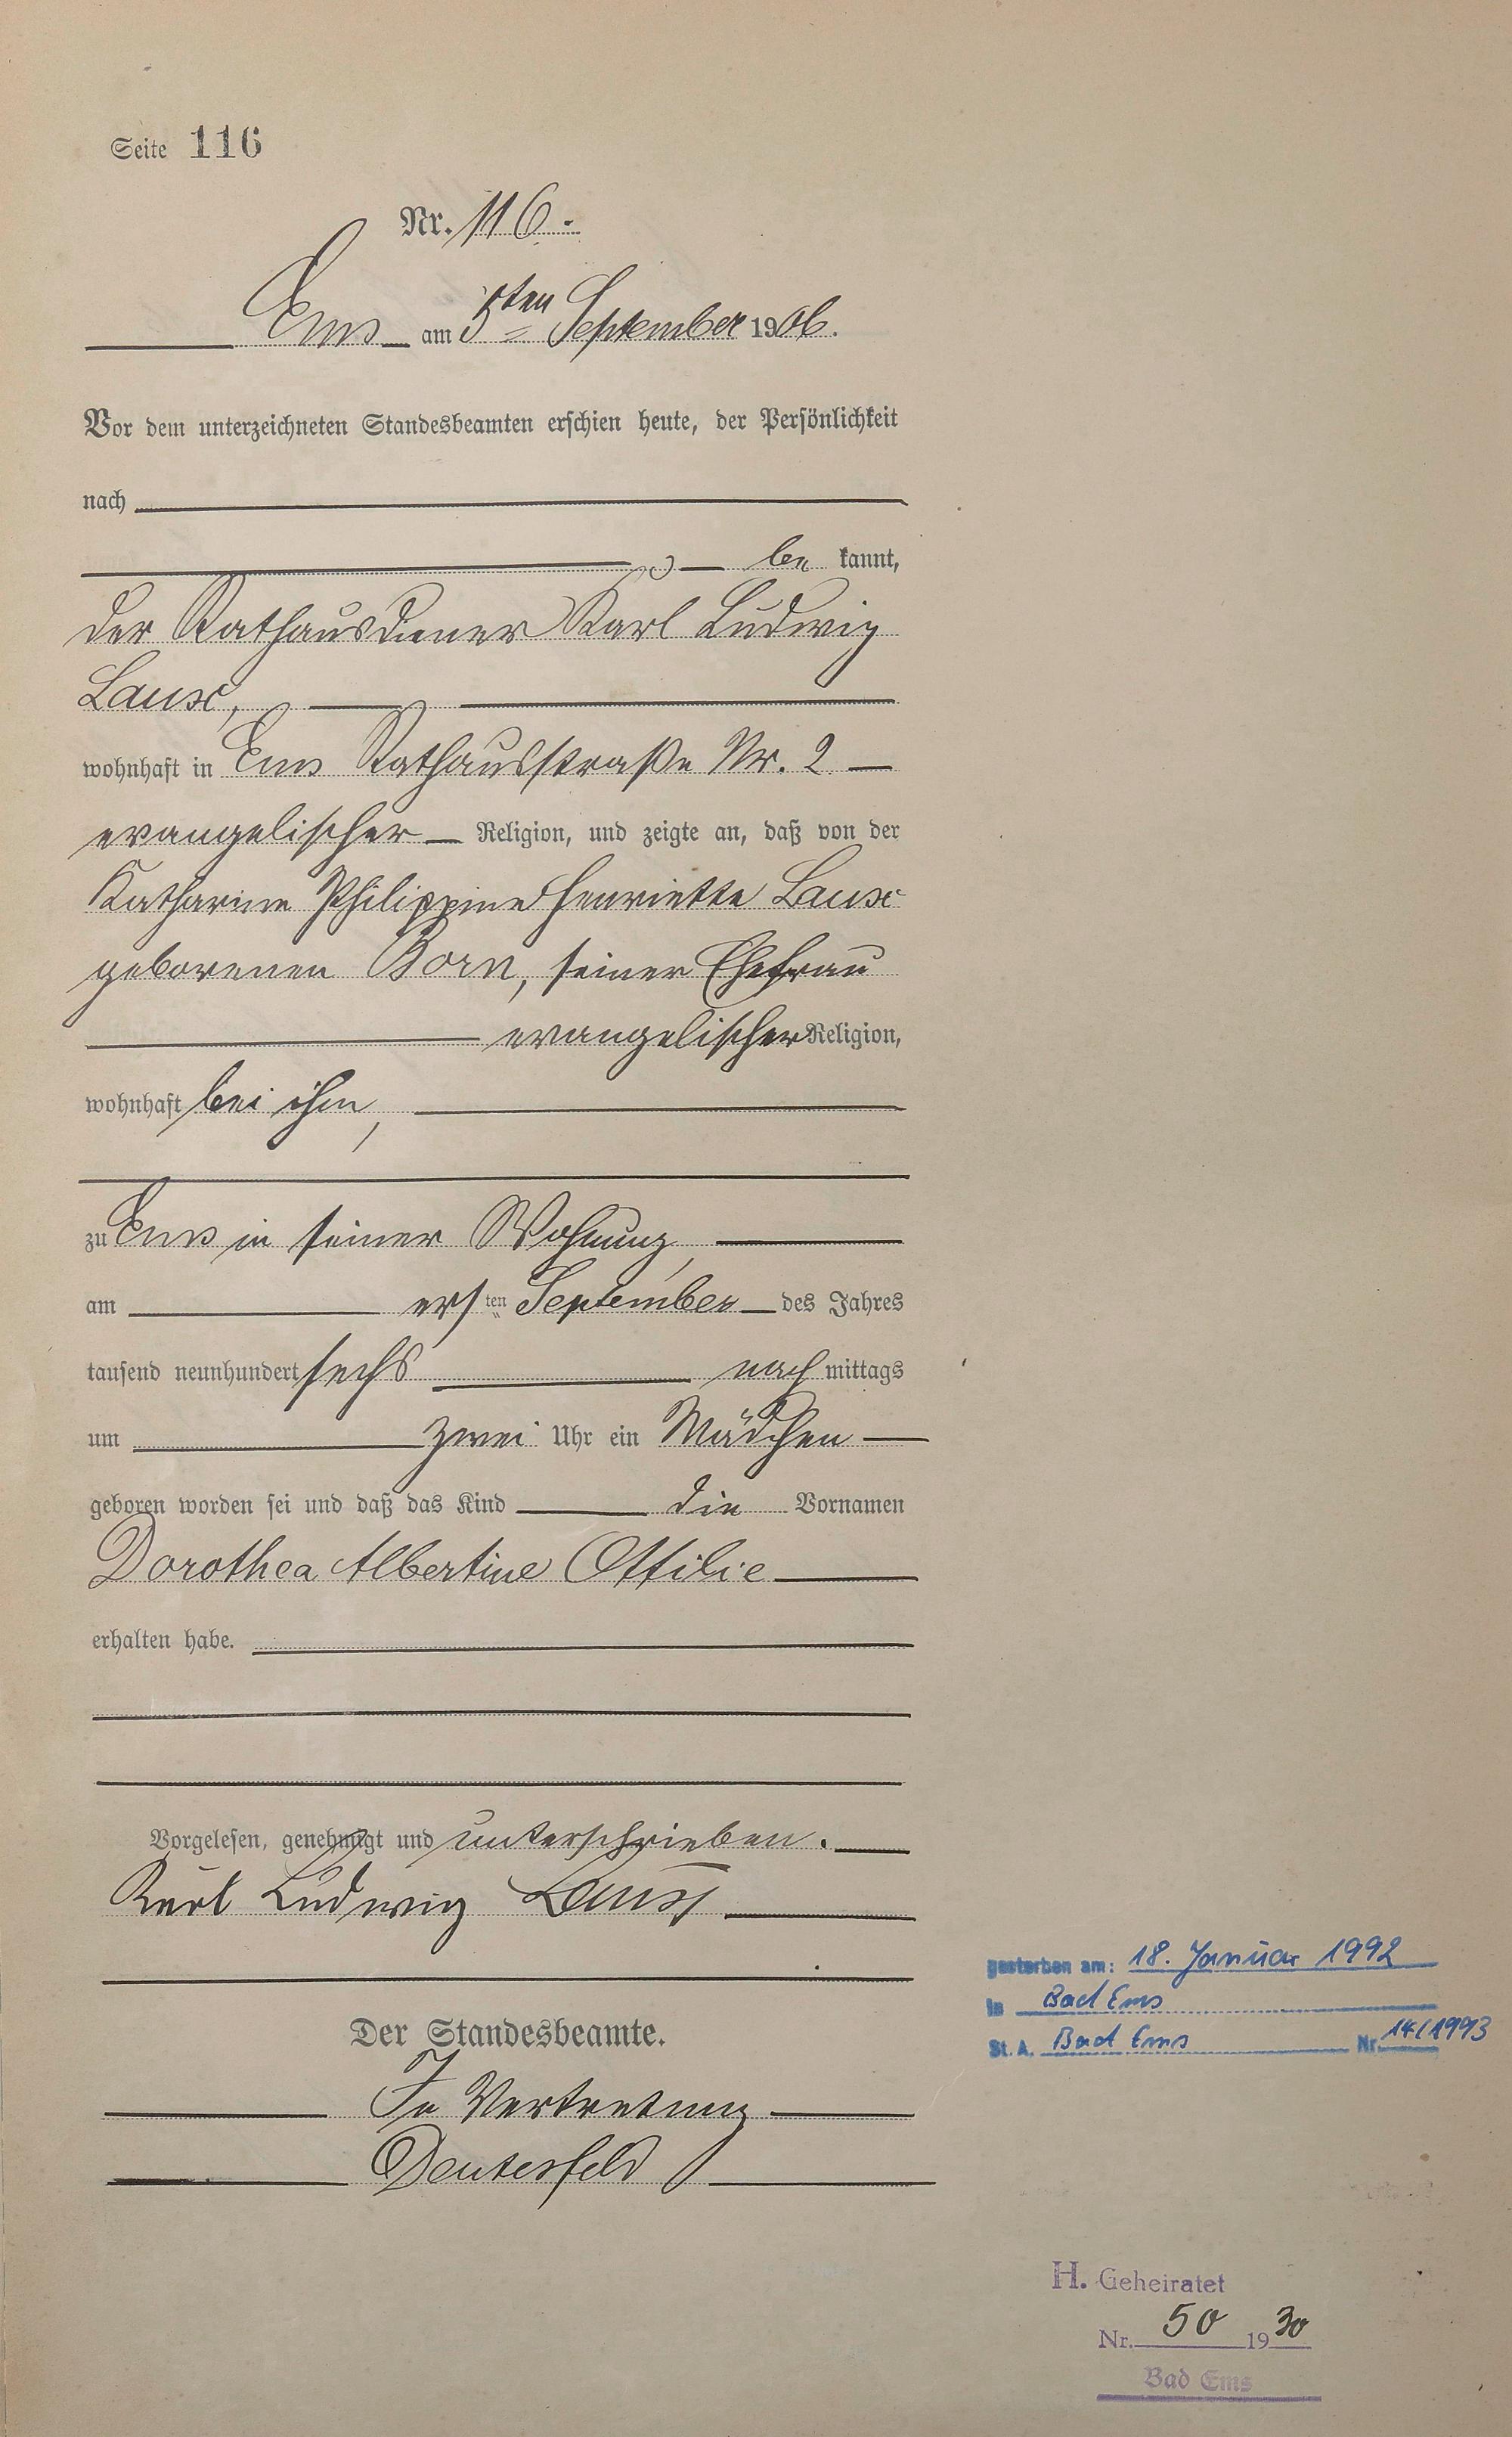 Seite 116
Nr. 116.
Ems am 5ten September 1906.
Vor dem unterzeichneten Standesbeamten erschien heute, der Persönlichkeit
nach
be kannt,
der Rathausdiener Karl Ludwig
Laux,
wohnhaft in Ems Rathausstraße Nr. 2
evangelischer Religion, und zeigte an, daß von der
Katharine Philippine Henriette Laux
geborenen Born, seiner Ehefrau
evangelischer Religion,
wohnhaft bei ihm,
zu Ems in seiner Wohnung,
am ersten September des Jahres
tausend neunhundert sechs nachmittags
um zwei Uhr ein Mädchen
geboren worden sei und daß das Kind die Vornamen
Dorothea Albertine Ottilie
erhalten habe.
Vorgelesen, genehmigt und unterschrieben.
Karl Ludwig Laux
Der Standesbeamte.
In Vertretung
gestorben am: 18. Januar 1992
in Bad Ems
St. A. Bad Ems Nr. 14/1993
H. Geheiratet
Nr. 50 1930
Bad Ems